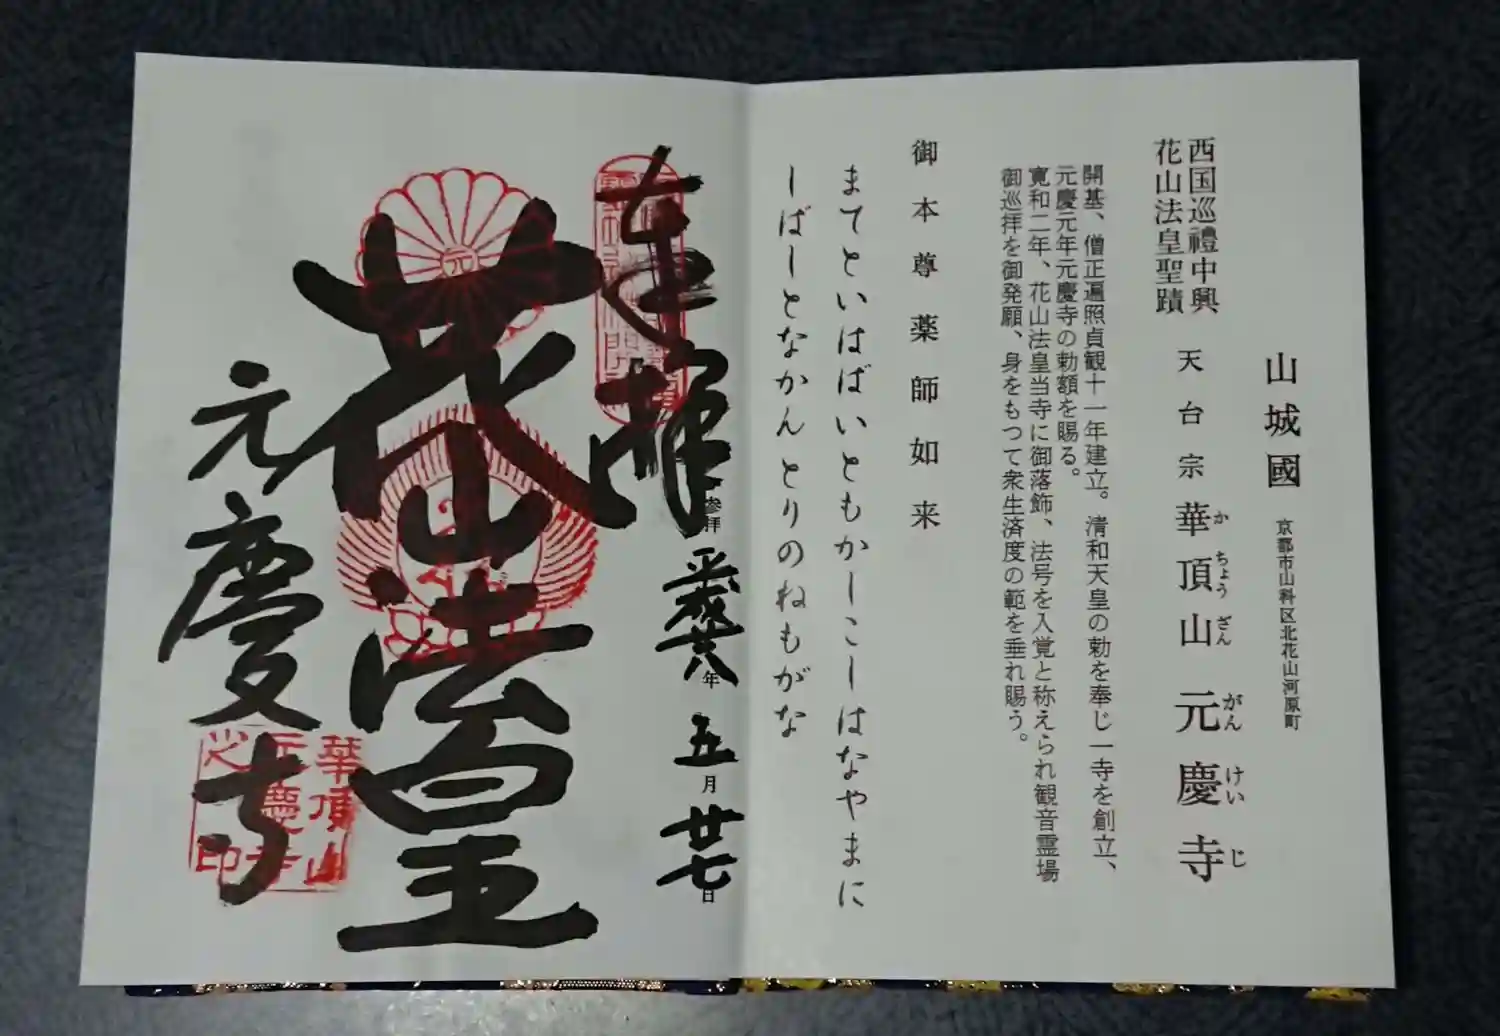 山城國 京都市山科区北花山河原町
西国巡禮中興
花山法皇聖蹟
天台宗 華頂山 元慶寺
か ちょう ざん がん けい じ
開基、僧正遍照貞観十一年建立。清和天皇の勅を奉じ一寺を創立、
元慶元年元慶寺の勅額を賜る。
寛和二年、花山法皇当寺に御落飾、法号を入覚と称えられ観音霊場
御巡拝を御発願、身をもつて衆生済度の範を垂れ賜う。
御本尊薬師如来
まてといはばいともかしこしはなやまに
しばしとなかんとりのねもがな
奉拝
参拝 平成廿八年 五月 廿七日
花山法皇
元
元慶寺
華頂山
元慶寺
之印